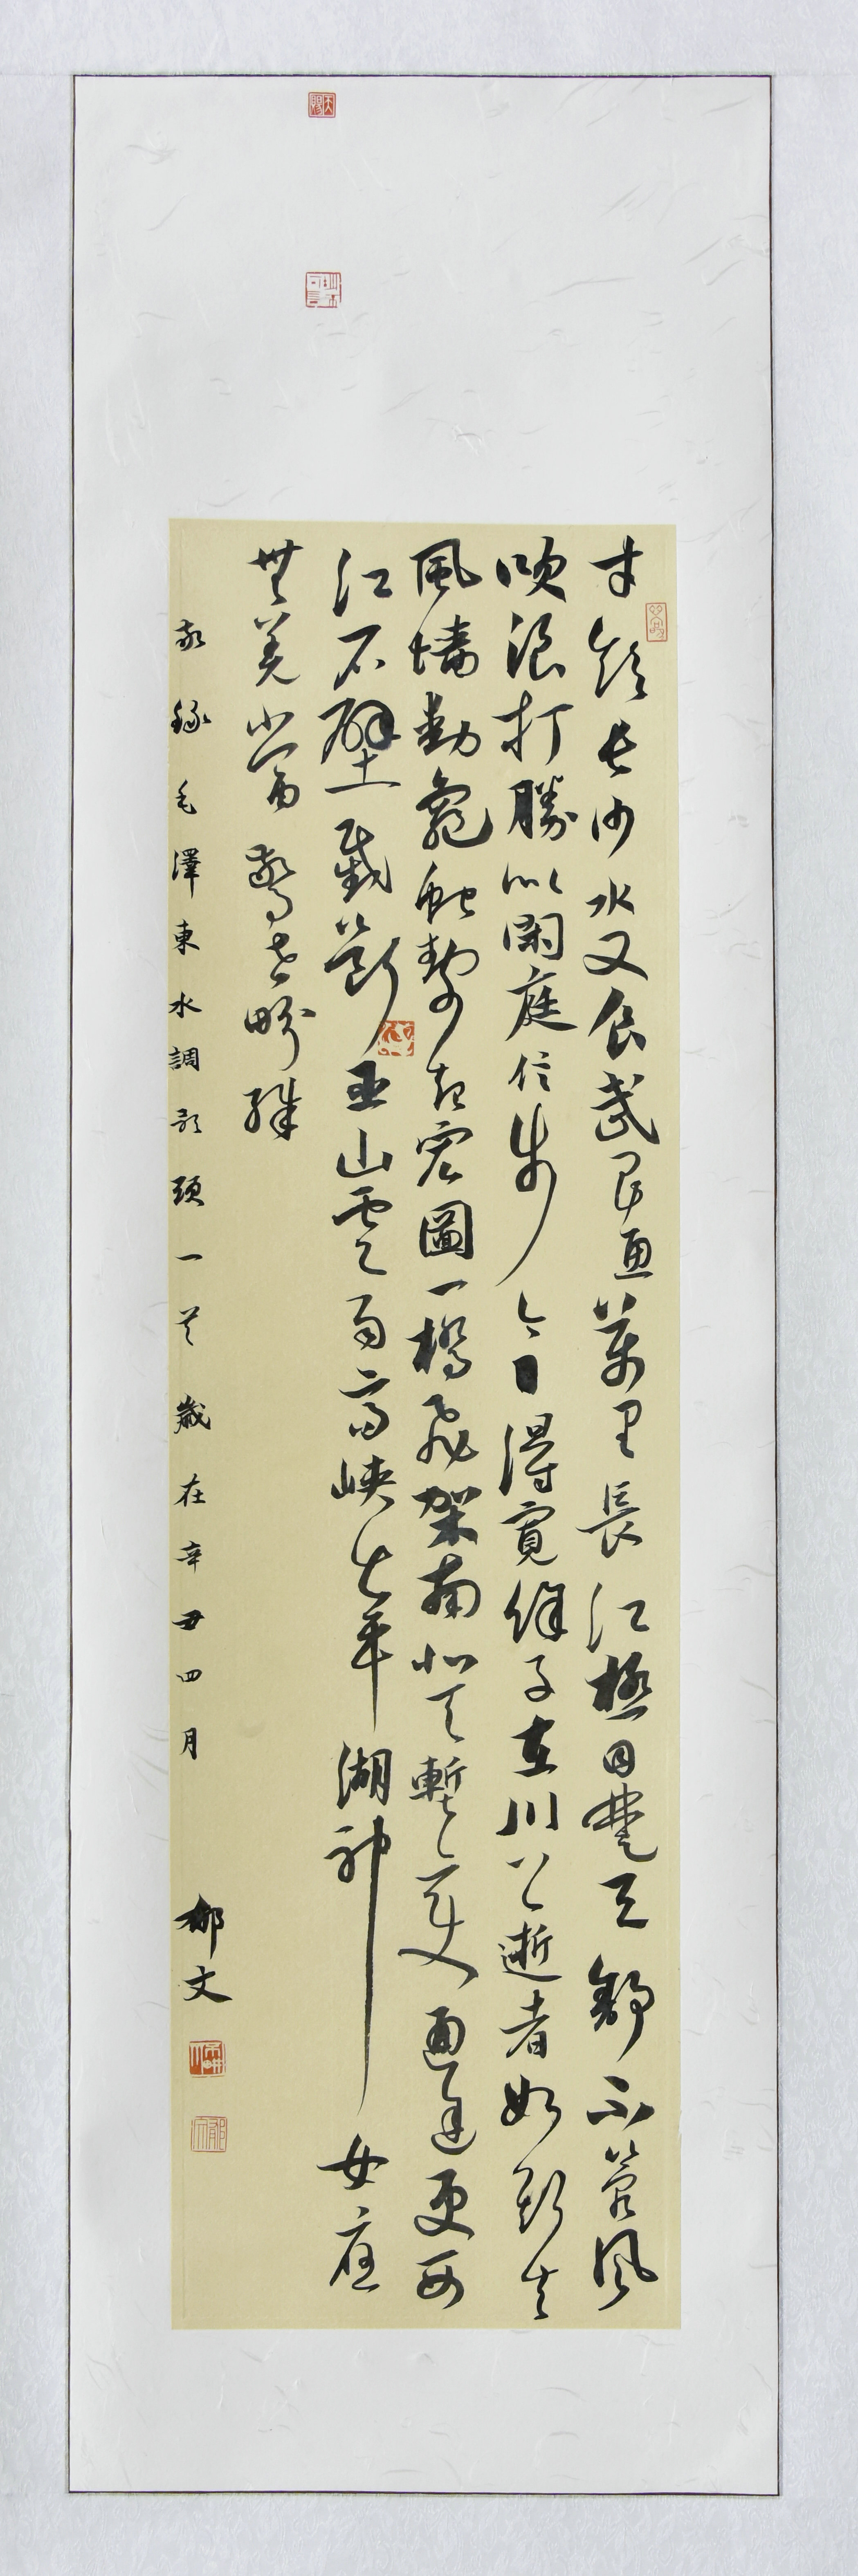 才飲長沙水又食武昌魚萬里長江極目楚天舒不管風
吹浪打勝似閑庭信步今日得寬餘子在川上曰逝者如斯夫
風墻動龜蛇靜起宏圖一橋飛架南北天塹變通途更西
江石壁截斷巫山雲雨高峽出平湖神女應
無恙當驚世界殊
敬錄毛澤東水調歌頭一首歲在辛丑四月
郁文